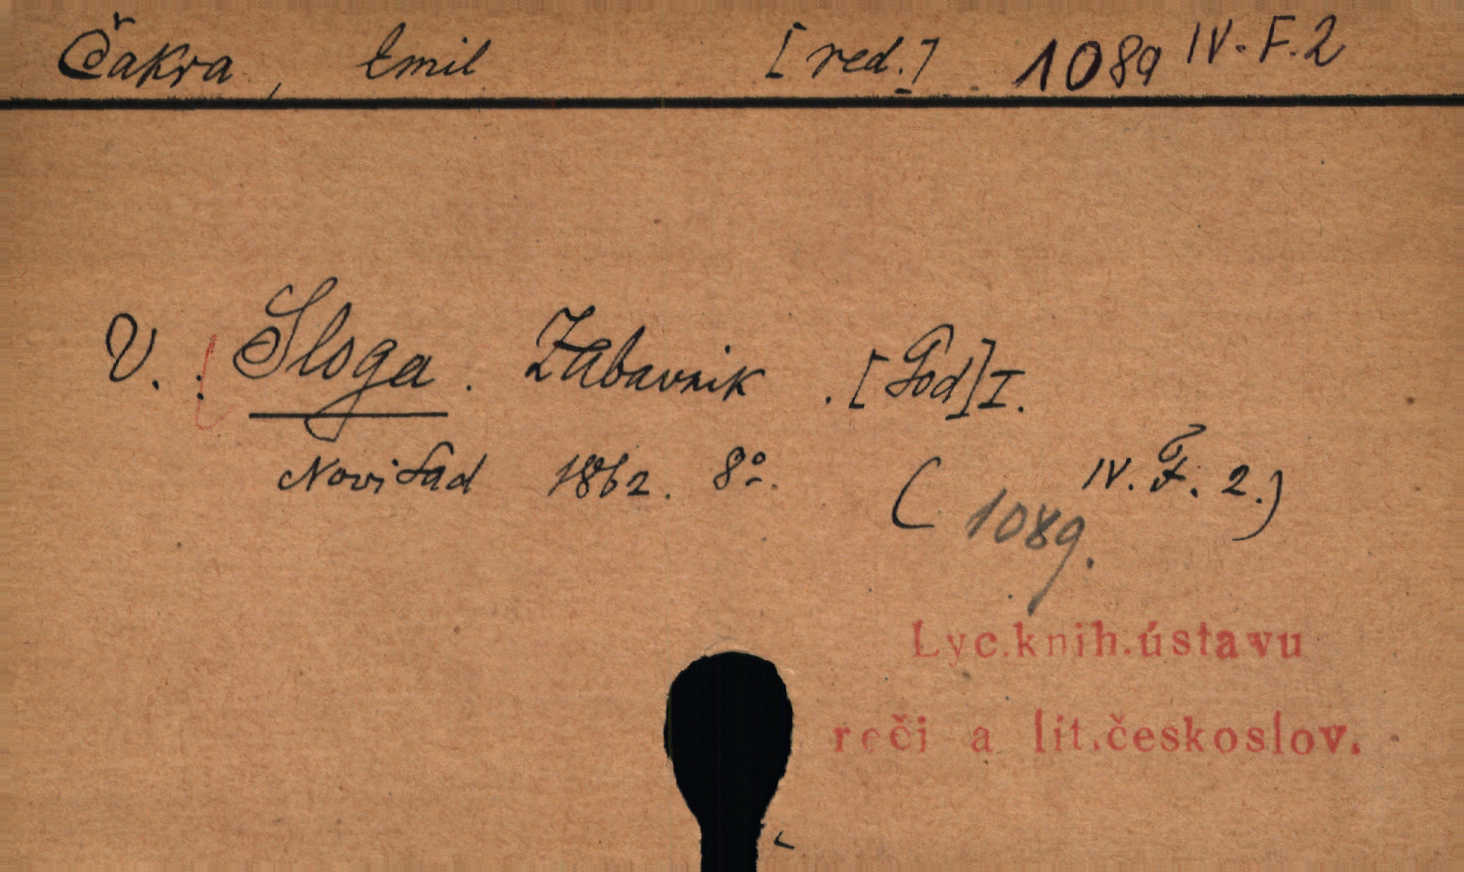 Čakra, Emil [red.]. 1089 IV. F. 2
V. : Sloga. Zabavnik. [God] I.
Novi Sad 1862. 8°. (IV. F. 2.)
1089.
Lyc. knih. ústavu
reči a lit. českoslov.